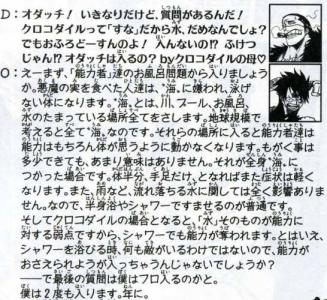 D：オダッチ！ いきなりだけど、質問があるんだ！
クロコダイルって「すな」だから水、だめなんでしょ？
でもおふろどーすんのよ！ 入んないの!? ふけつ
じゃん!? オダッチは入るの？ byクロコダイルの母♡
O：えーまず、「能力者」達のお風呂問題から入りましょう
か。悪魔の実を食べた人達は、“海”に嫌われ、泳げ
ない体になります。“海”とは、川、プール、お風呂、
水のたまっている場所全てをさします。地球規模で
考えると全て“海”なのです。それらの場所に入ると能力者達は
能力はもちろん体が思うように動かなくなります。もがく事は
多少できても、あまり意味はありません。それが全身“海”に
つかった場合です。体半分、手足だけ、となればまた症状は軽く
なります。また、雨など、流れ落ちる水に関しては全く影響ありま
せん。なので、半身浴やシャワーですませるのが普通です。
そしてクロコダイルの場合となると、「水」そのものが能力に
対する弱点ですから、シャワーでも能力が奪われます。とはいえ、
シャワーを浴びる時、何も敵がいるわけではないので、能力が
おさえられようが入っちゃうんじゃないでしょうか？
――で最後の質問は僕はフロ入るのかと。
僕は2度も入ります。年に。